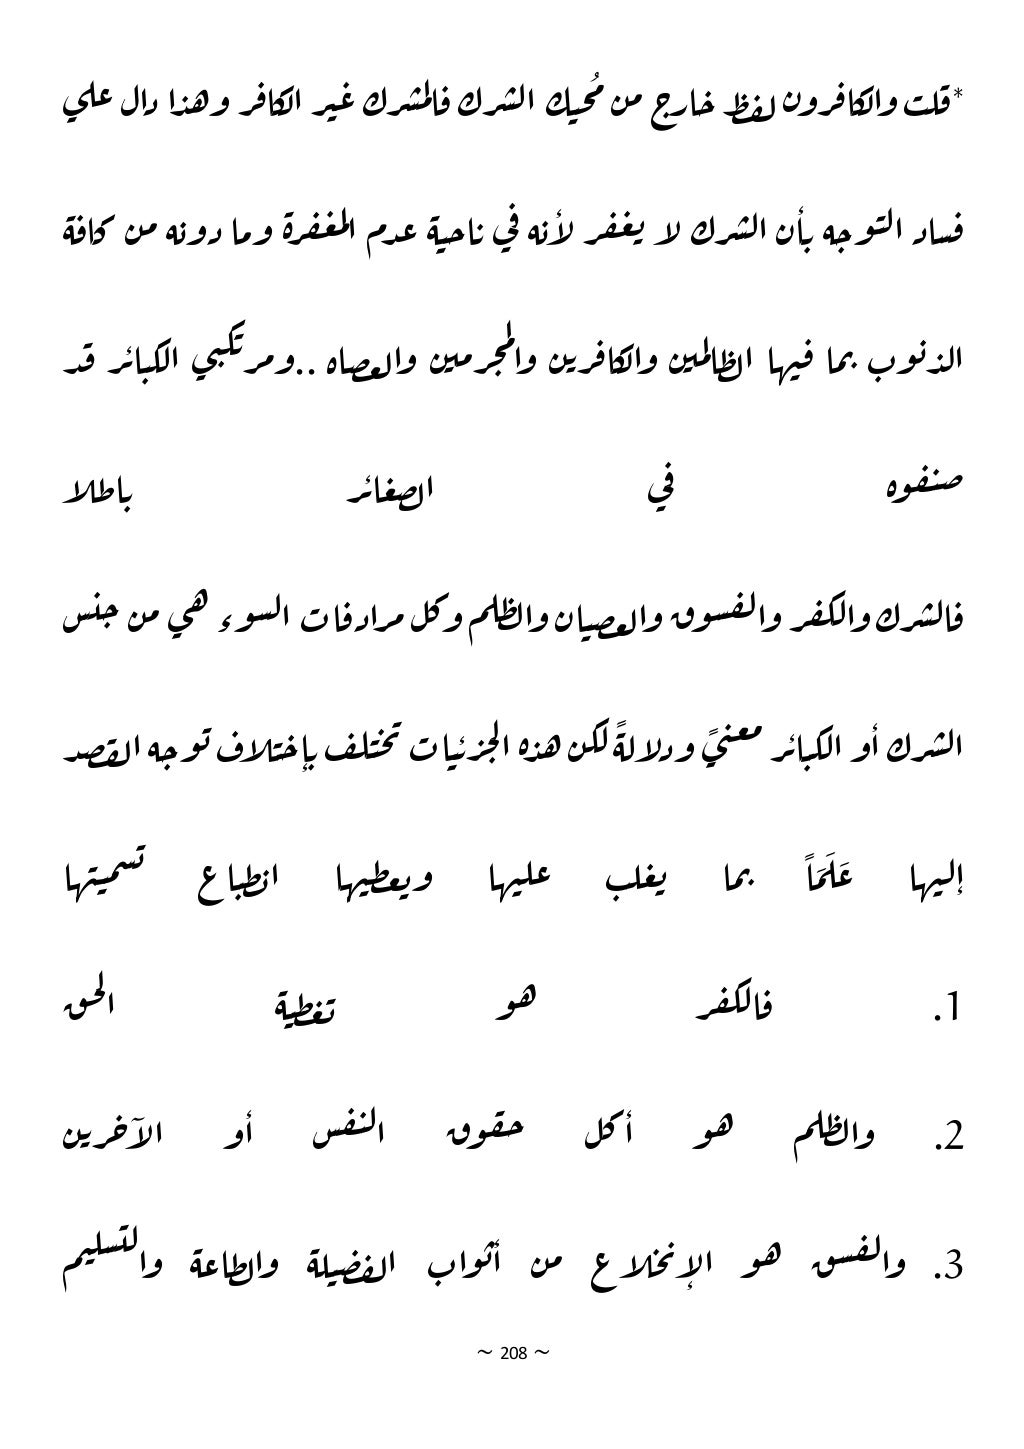 *قلت والكافرون لفظ خارج من مُحيك الشرك فالمشرك غير الكافر وهذا دال علي
فساد التوجه بأن الشرك لا يغفر لأنه في ناحية عدم المغفرة وما دونه من كافة
الذنوب بما فيها الظالمين والكافرين والمجرمين والعصاه ..ومرتكبي الكبائر قد
صنفوه في الصغائر باطلا
فالشرك والكفر والفسوق والعصيان والظلم وكل مرادفات السوء هي من جنس
الشرك أو الكبائر معنيً ودلالةً لكن هذه الجزئيات تختلف بإختلاف توجه القصد
إليها عَلَمَاً بما يغلب عليها ويعطيها انطباع تسميتها
1. فالكفر هو تغطية الحق
2. والظلم هو أكل حقوق النفس أو الآخرين
3. والفسق هو الإنخلاع من أثواب الفضيلة والطاعة والتسليم
~ 208 ~